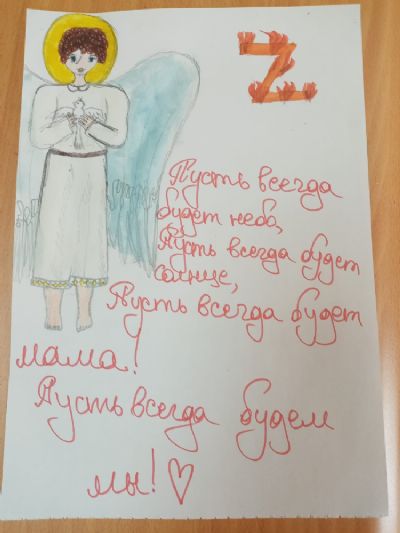 Z
Пусть всегда
будет небо,
Пусть всегда будет
солнце,
Пусть всегда будет
мама!
Пусть всегда будем
мы!